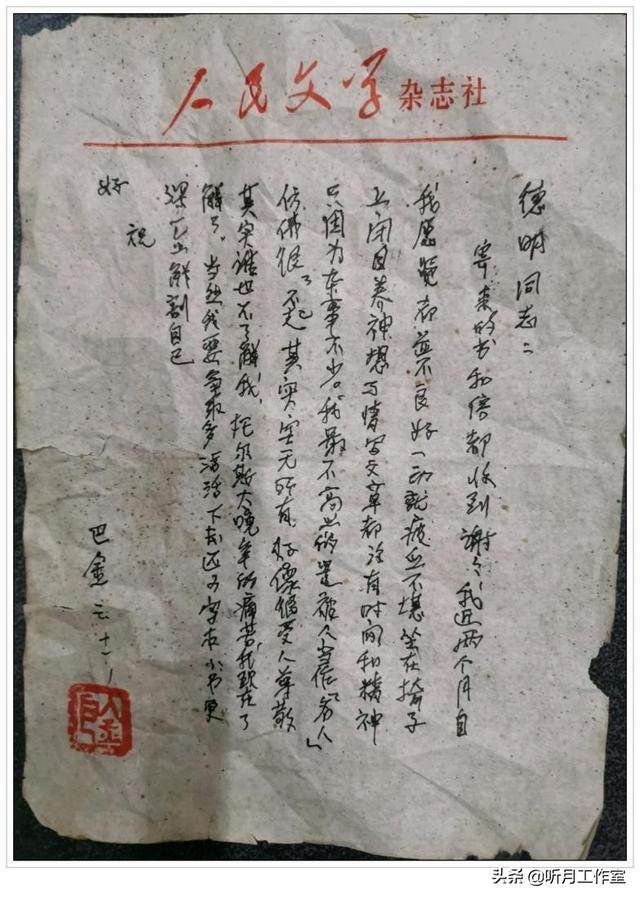 人民文学 杂志社
德明同志：
寄来的书和信都收到谢谢，我近两个月自
我感觉都並不良好一动就疲乏不堪坐在椅子
上闭目养神想写文章都没有时间和精神
只因为杂事不少。我最不高兴的是被人当作“名人”
仿佛很了不起其实空无所有好像很受人尊敬
其实谁也不了解我，托尔斯太晚年的痛苦我现在了
解了，当然我要争取多活活下去 本小书更
深 解剖自己
祝
好
巴金
头条 @听月工作室